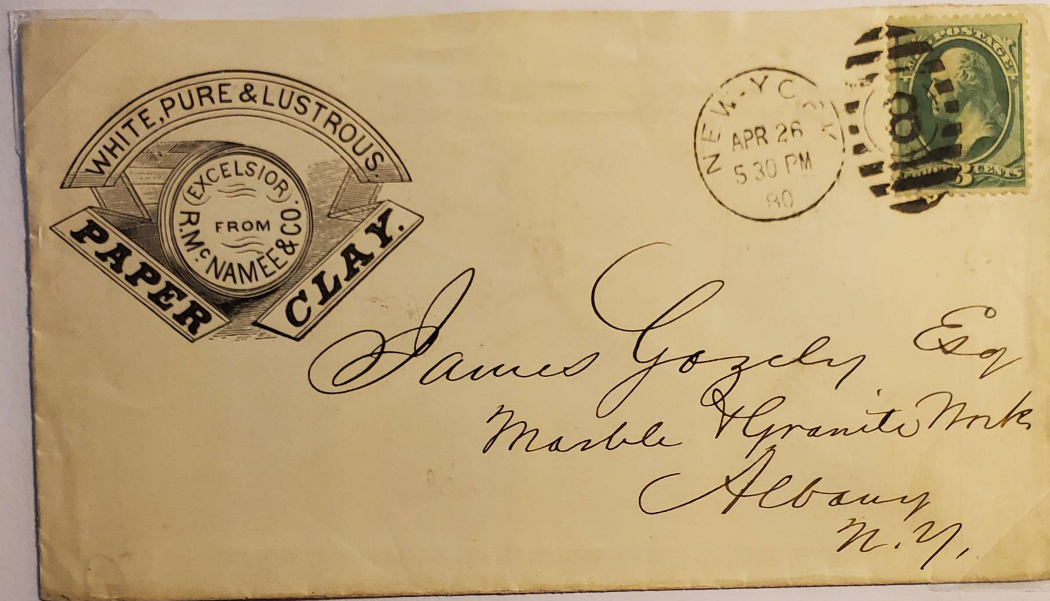 WHITE, PURE & LUSTROUS.
EXCELSIOR
FROM
R. Mc NAMEE & CO.
PAPER CLAY.
NEW-YORK
APR 26
5 30 PM
80
8
POSTAGE
3 CENTS
James Gozely Esq
Marble & Granite Works
Albany
N.Y.